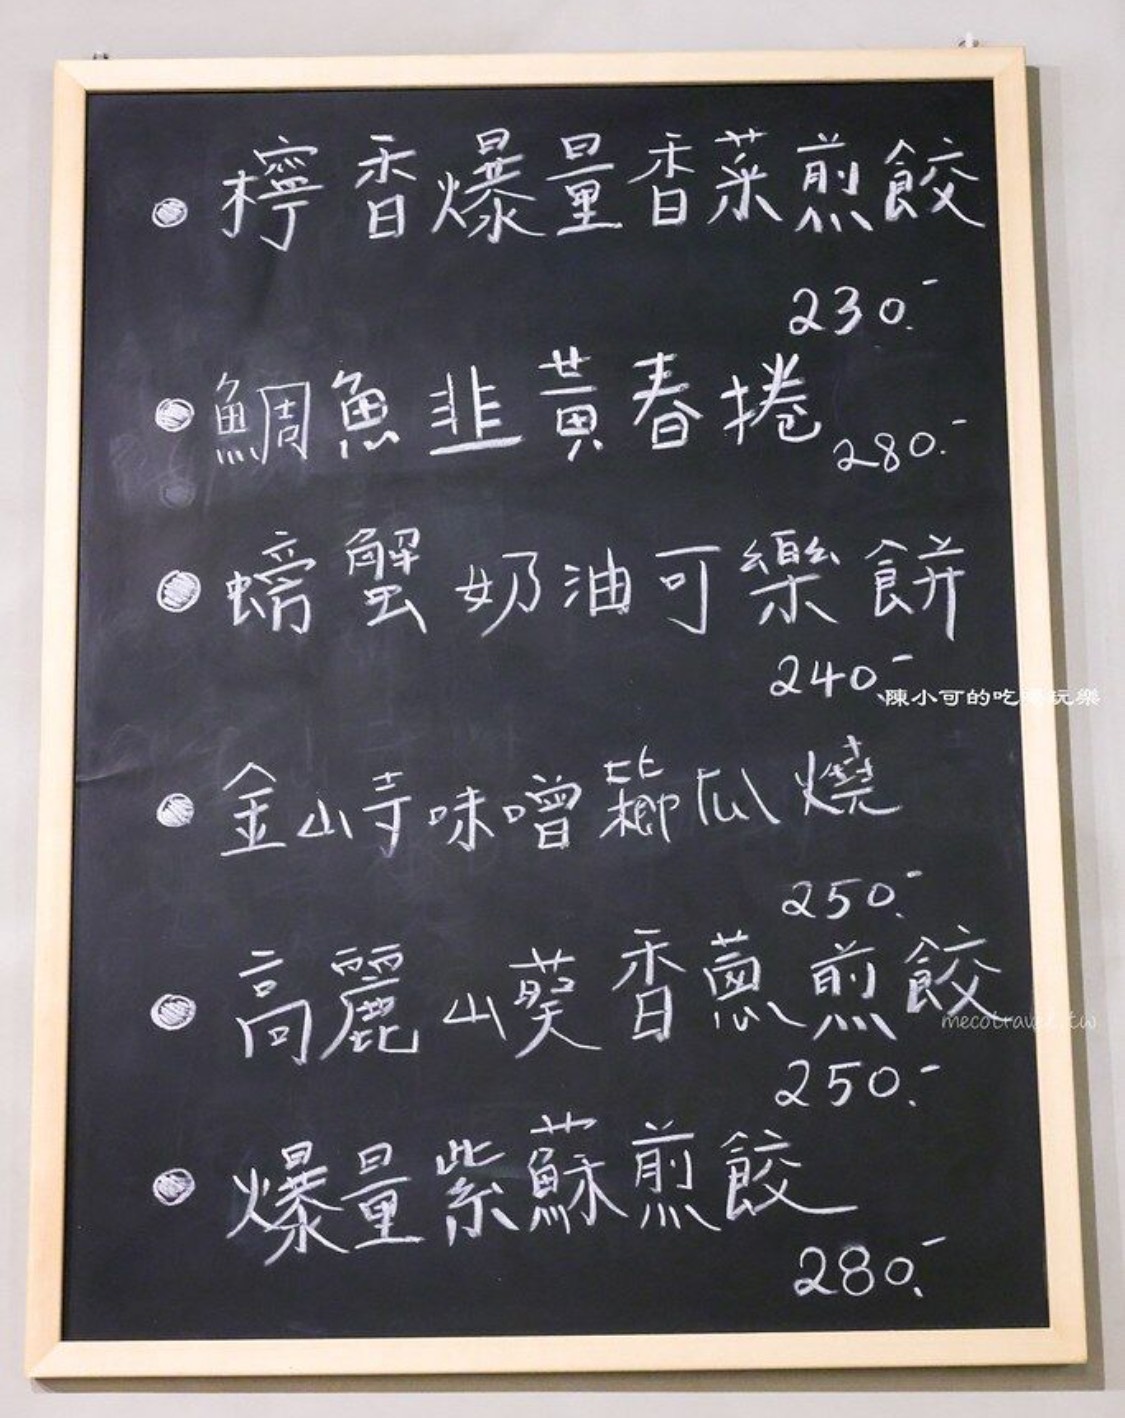 檸香爆量香菜煎餃
230.-
鯛魚韭黃春捲
280.-
螃蟹奶油可樂餅
240.-
陳小可的吃喝玩樂
金山寺味噌櫛瓜燒
250.-
高麗山葵香蔥煎餃
mecotravel.tw
250.-
爆量紫蘇煎餃
280.-